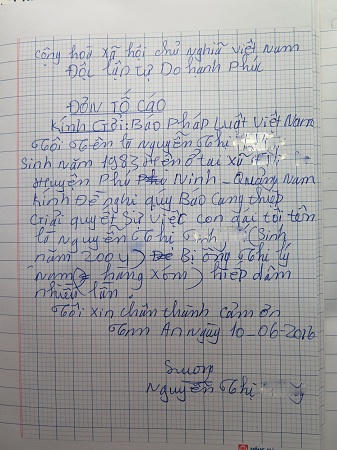 Cộng hoà xã hội chủ nghĩa việt nam
Độc lập tự Do hạnh Phúc
ĐƠN TỐ CÁO
Kính Gởi: Báo Pháp Luật Việt Nam
Tôi tên là nguyễn thị
Sinh năm 1983 Hiện ở tại xã
Huyện Phú Ninh - Quảng Nam
kính Đề nghị quý Báo Can thiệp
Giải quyết Sự việc con gái tôi tên
là nguyễn thị (Sinh
năm 2004) Bị ông thi lý
nam (hàng xóm) hiếp dâm
nhiều lần.
Tôi xin chân thành cảm ơn
Tam An ngày 10-06-2016
Nguyễn thị